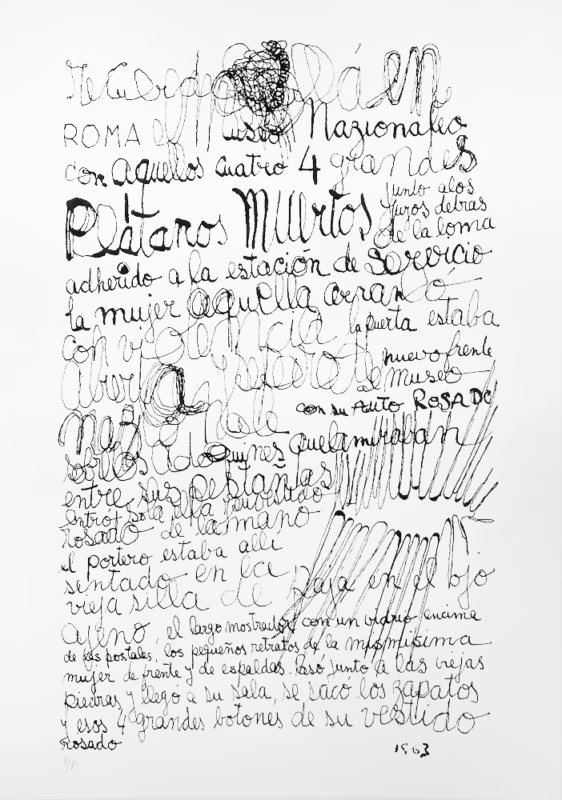 Recuerdo allá en
ROMA el Museo Nazionaleo
con aquellos cuatro 4 grandes
Plátanos Muertos junto a los
juros detras
de la loma
adherido a la estación de Servicio
la mujer aquella arrancó
con violencia la puerta estaba
abierta y esperó de nuevo frente
al museo
con su auto ROSADO
nazionale
sobre los adoquines que la miraban
entre sus pestañas
entró sola alfa vestido
rosado de la mano
el portero estaba alli
sentado en la
vieja silla de paja en el ojo
ajeno, el largo mostrador con un vidrio encima
de las postales, los pequeños retratos de la mismisima
mujer de frente y de espaldas. Pasó junto a las viejas
piedras y llego a su sala, se sacó los zapatos
y esos 4 grandes botones de su vestido
rosado
1963
P/A